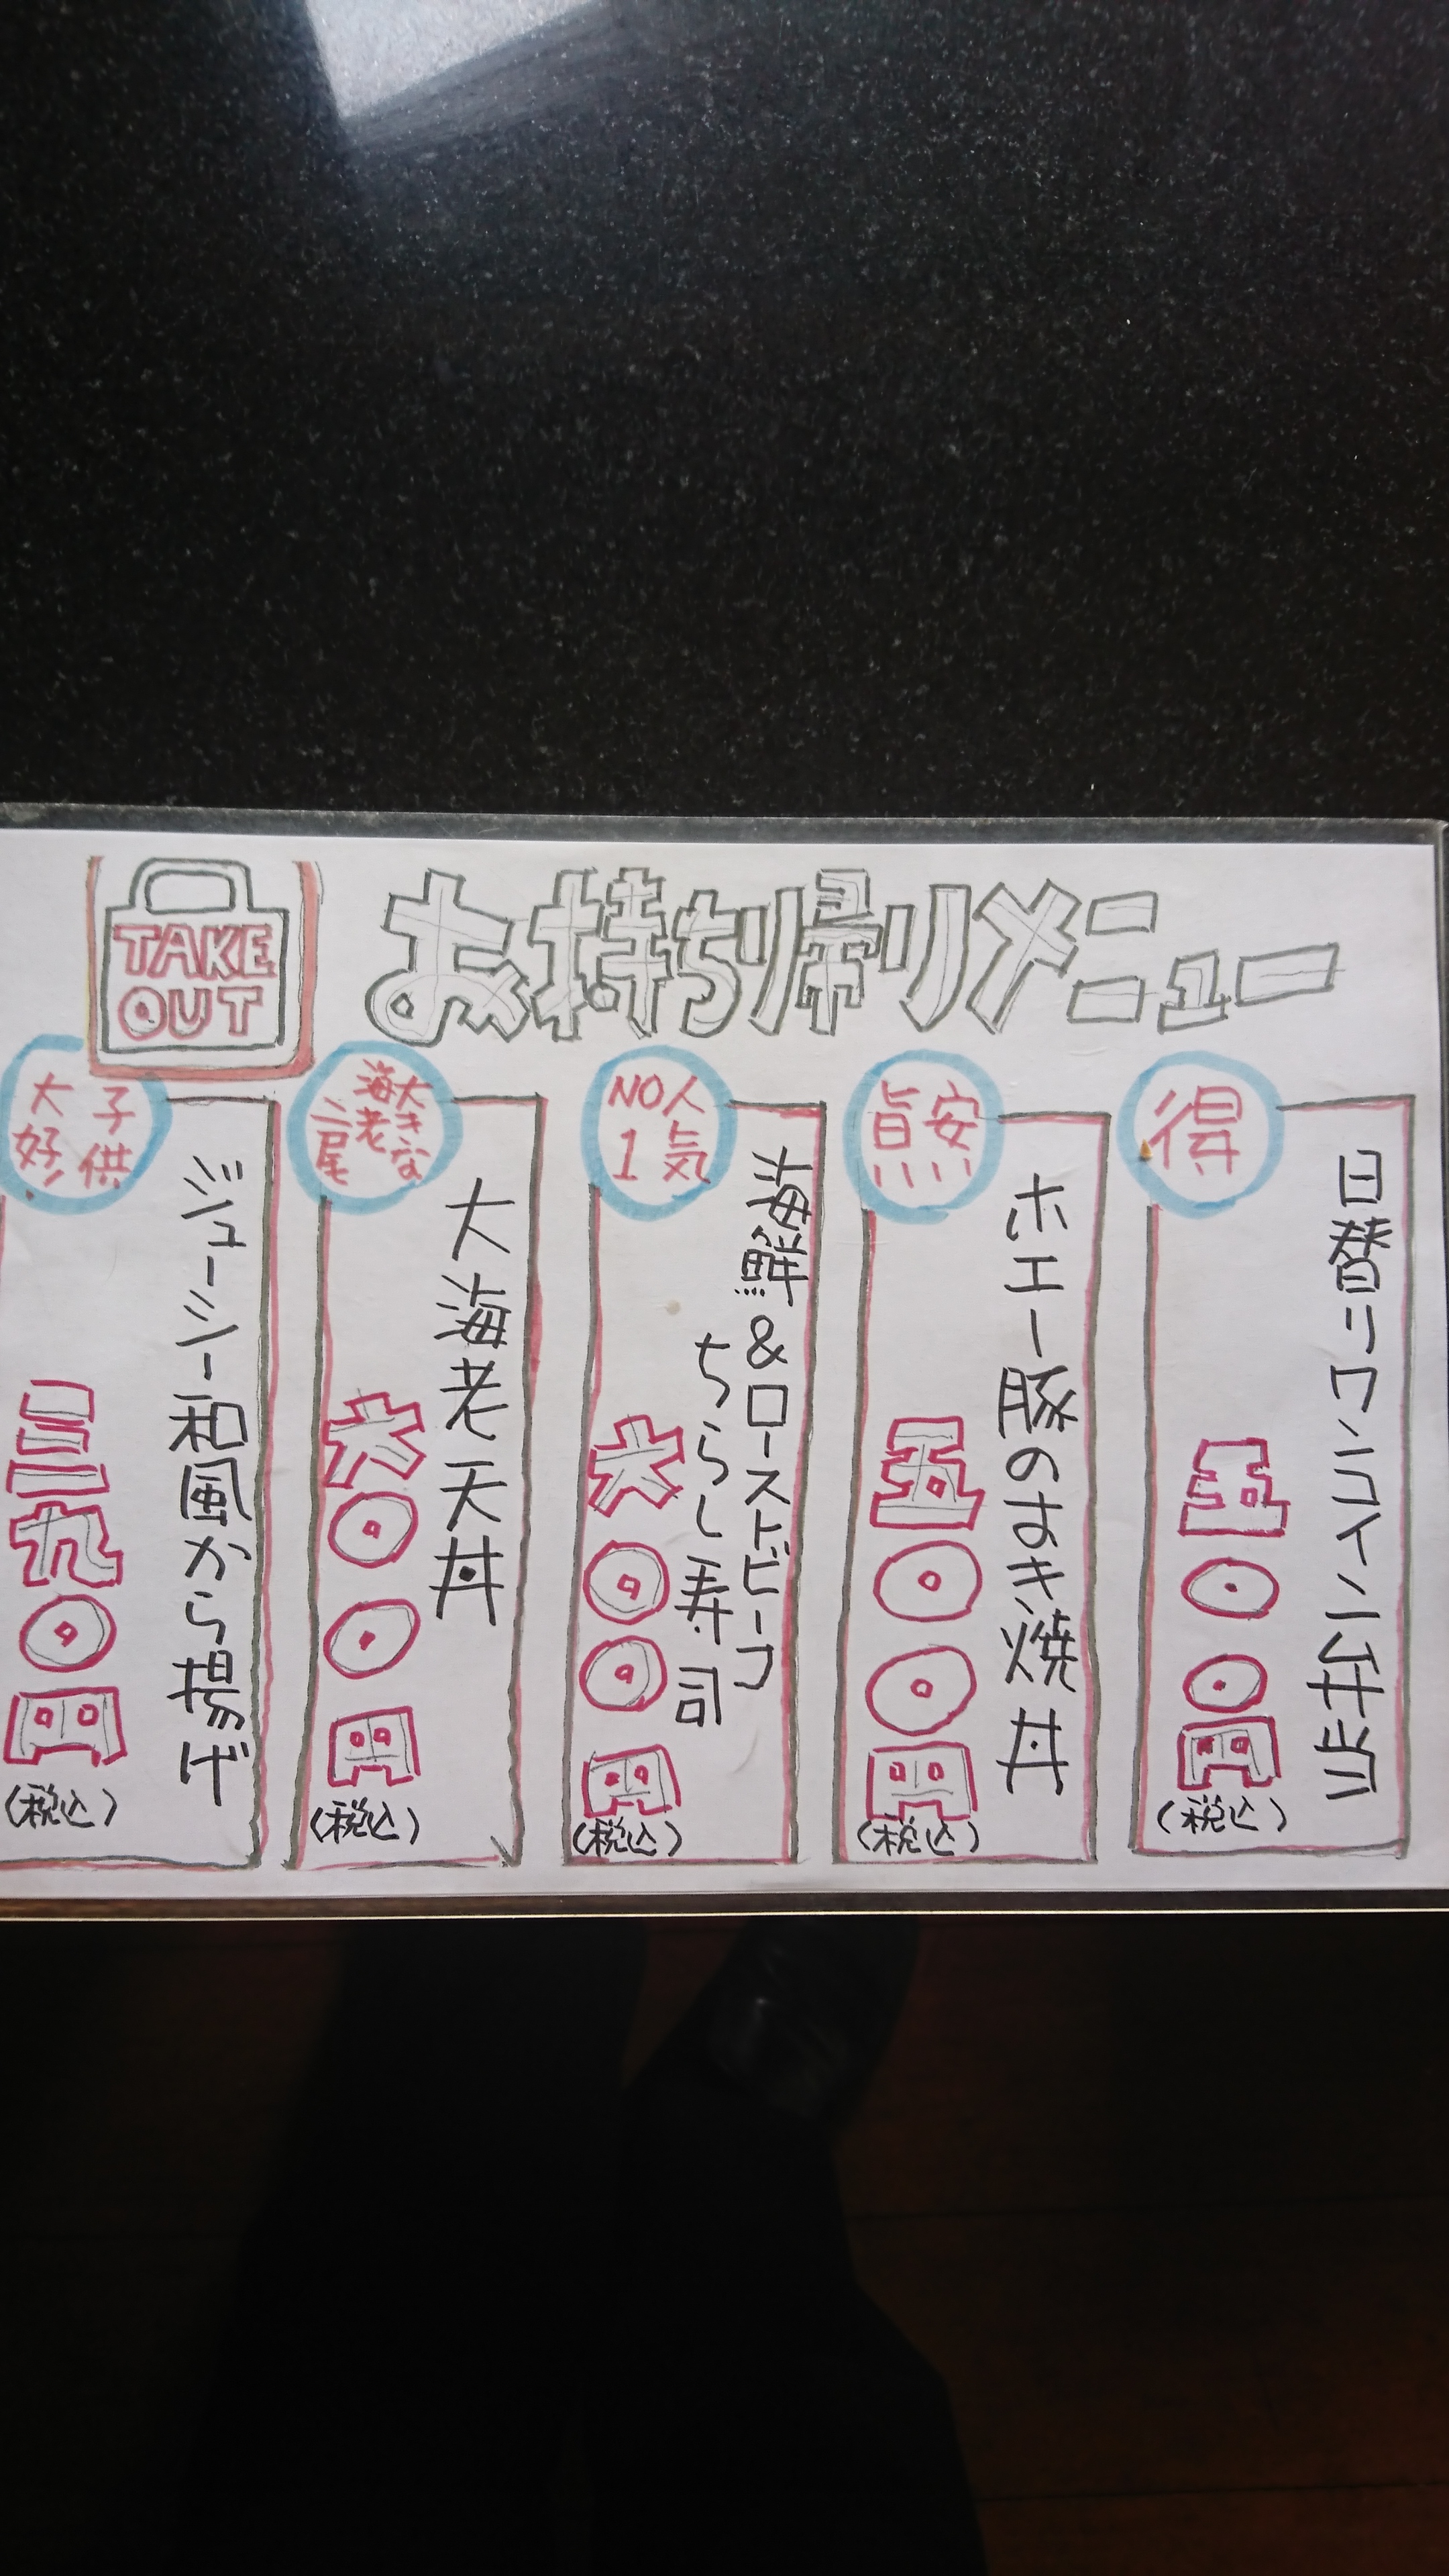 TAKE
OUT
お持ち帰りメニュー
得
日替りワンコイン弁当
五〇〇円
(税込)
ホエー豚のすき焼丼
五〇〇円
(税込)
人気
NO1
海鮮&ローストビーフ
ちらし寿司
六〇〇円
(税込)
大きな
海老
二尾
大海老天丼
六〇〇円
(税込)
子供
大好!
ジューシー和風から揚げ
三九〇円
(税込)